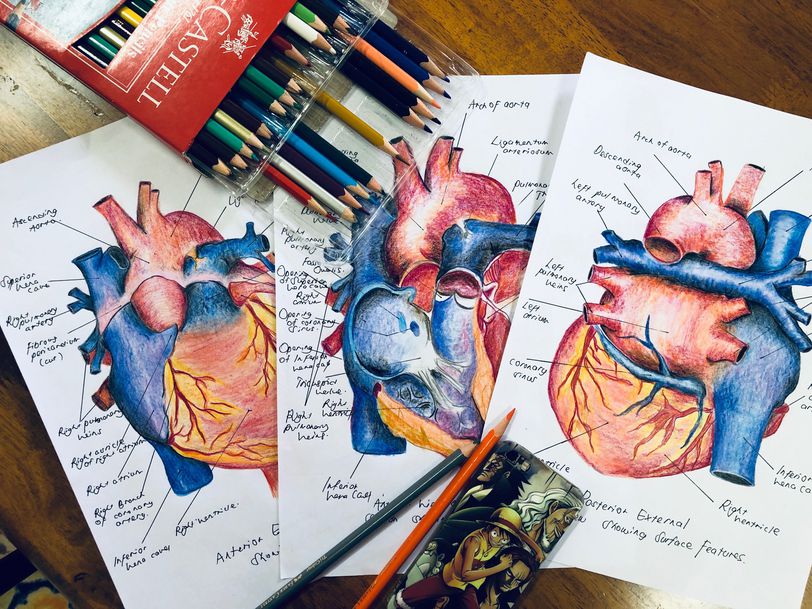 CASTELL
Pencils
Ascending
Aorta
Superior
vena cava
Right pulmonary
artery
Fibrous
pericardium
(cut)
Right pulmonary
veins
Right auricle
of right atrium
Right atrium
Right Branch
of coronary
artery.
Inferior
vena cava
Right ventricle.
Anterior E
Arch of aorta
Ligamentum
arteriosum
pulmonary
Right
pulmonary
artery
Ovalis.
Opening
of superior
vena cava
Right
atrium
Opening
of coronary
sinus
Opening
of Inferior
vena cava
Tricuspid
valve.
Right ventricle
Right
pulmonary
veins.
Inferior
vena cava
Arch of aorta
Descending
aorta
Left pulmonary
artery
Left
pulmonary
veins
Left
atrium
coronary
sinus
ventricle
Right
ventricle
Inferior
vena ca
Posterior External
showing surface features.